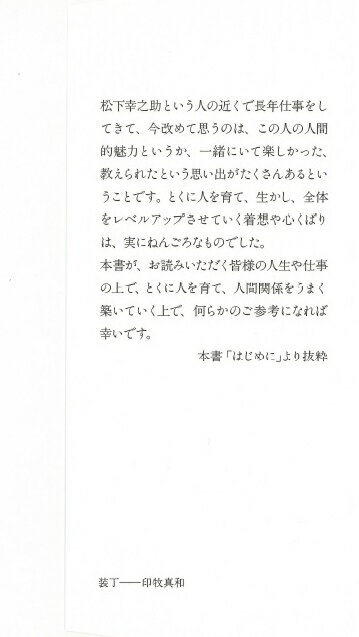 松下幸之助という人の近くで長年仕事をし
てきて、今改めて思うのは、この人の人間
的魅力というか、一緒にいて楽しかった、
教えられたという思い出がたくさんあるとい
うことです。とくに人を育て、生かし、全体
をレベルアップさせていく着想や心くばり
は、実にねんごろなものでした。
本書が、お読みいただく皆様の人生や仕事
の上で、とくに人を育て、人間関係をうまく
築いていく上で、何らかのご参考になれば
幸いです。
本書「はじめに」より抜粋
装丁――印牧真和